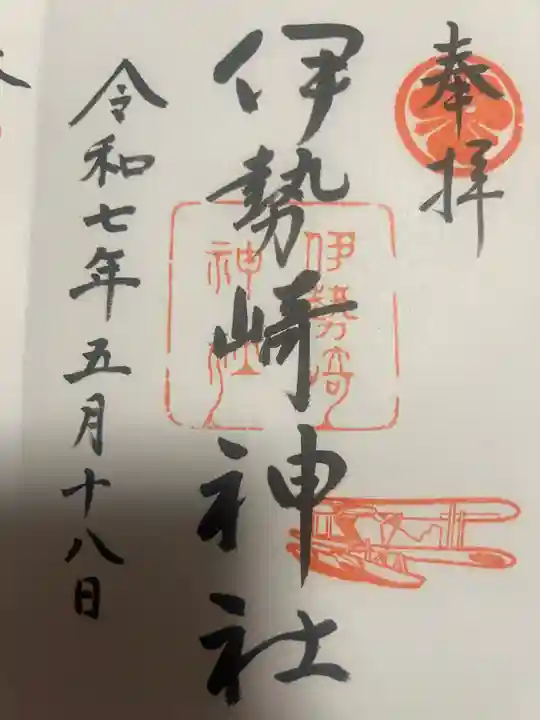 奉拝
伊勢崎神社
伊勢崎
神社
令和七年五月十八日